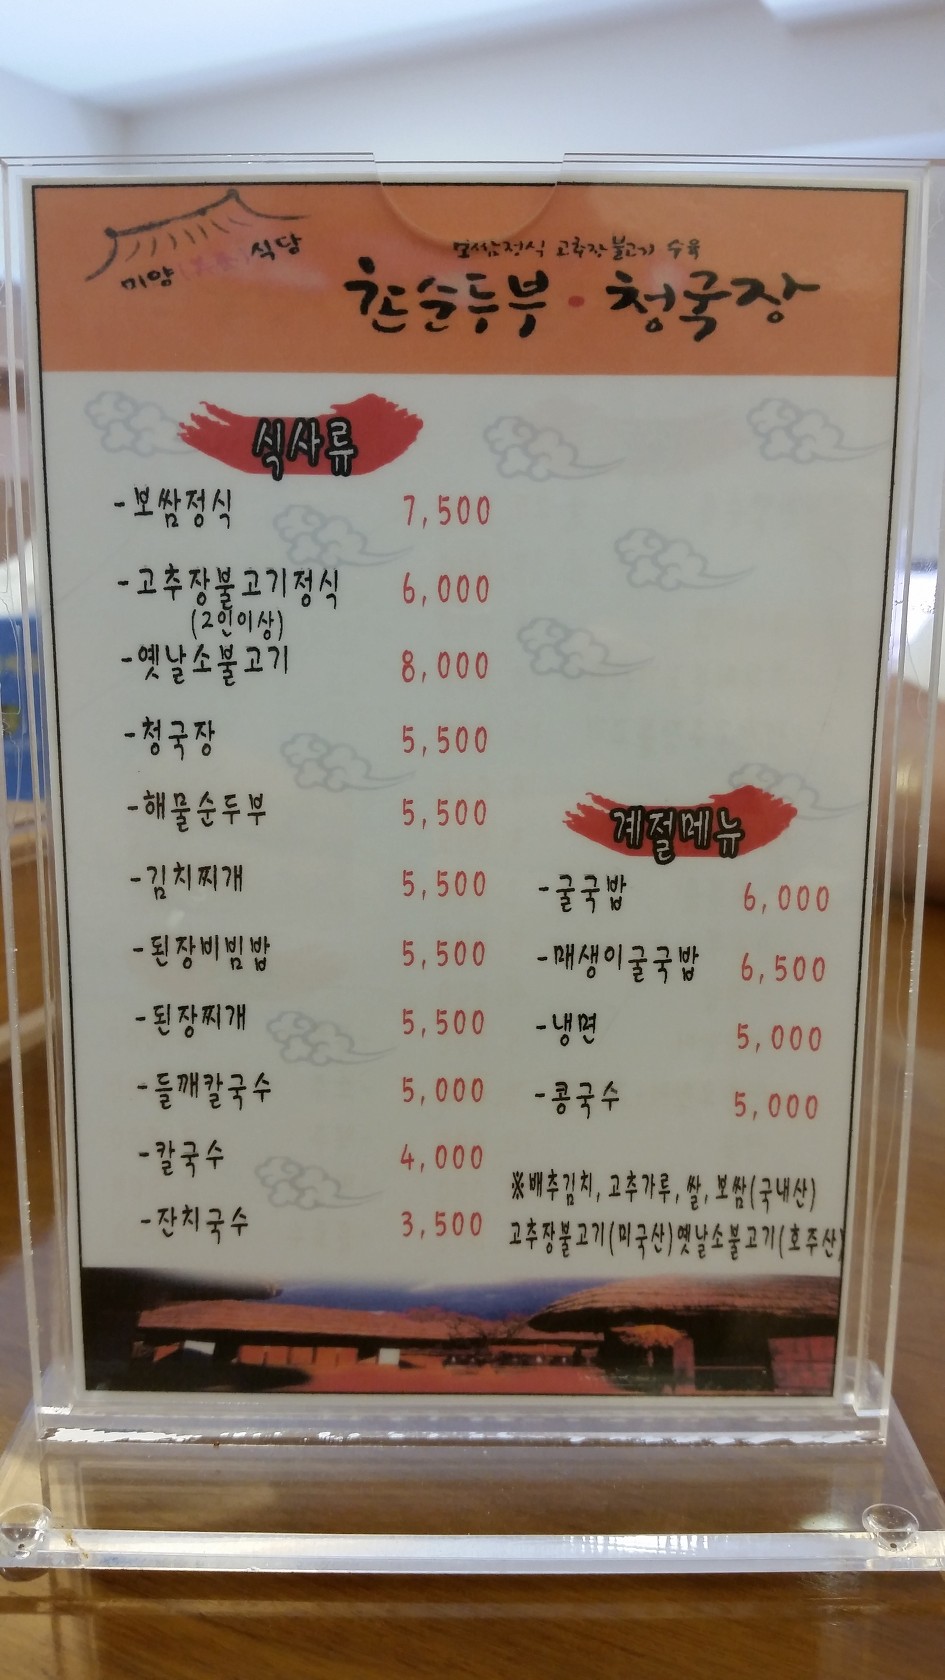 미양 식당
보쌈정식 고추장불고기 수육
찬순두부·청국장
식사류
-보쌈정식 7,500
-고추장불고기정식 6,000
(2인이상)
-옛날소불고기 8,000
-청국장 5,500
-해물순두부 5,500
-김치찌개 5,500
-된장비빔밥 5,500
-된장찌개 5,500
-들깨칼국수 5,000
-칼국수 4,000
-잔치국수 3,500
계절메뉴
-굴국밥 6,000
-매생이굴국밥 6,500
-냉면 5,000
-콩국수 5,000
※배추김치, 고추가루, 쌀, 보쌈(국내산)
고추장불고기(미국산)옛날소불고기(호주산)